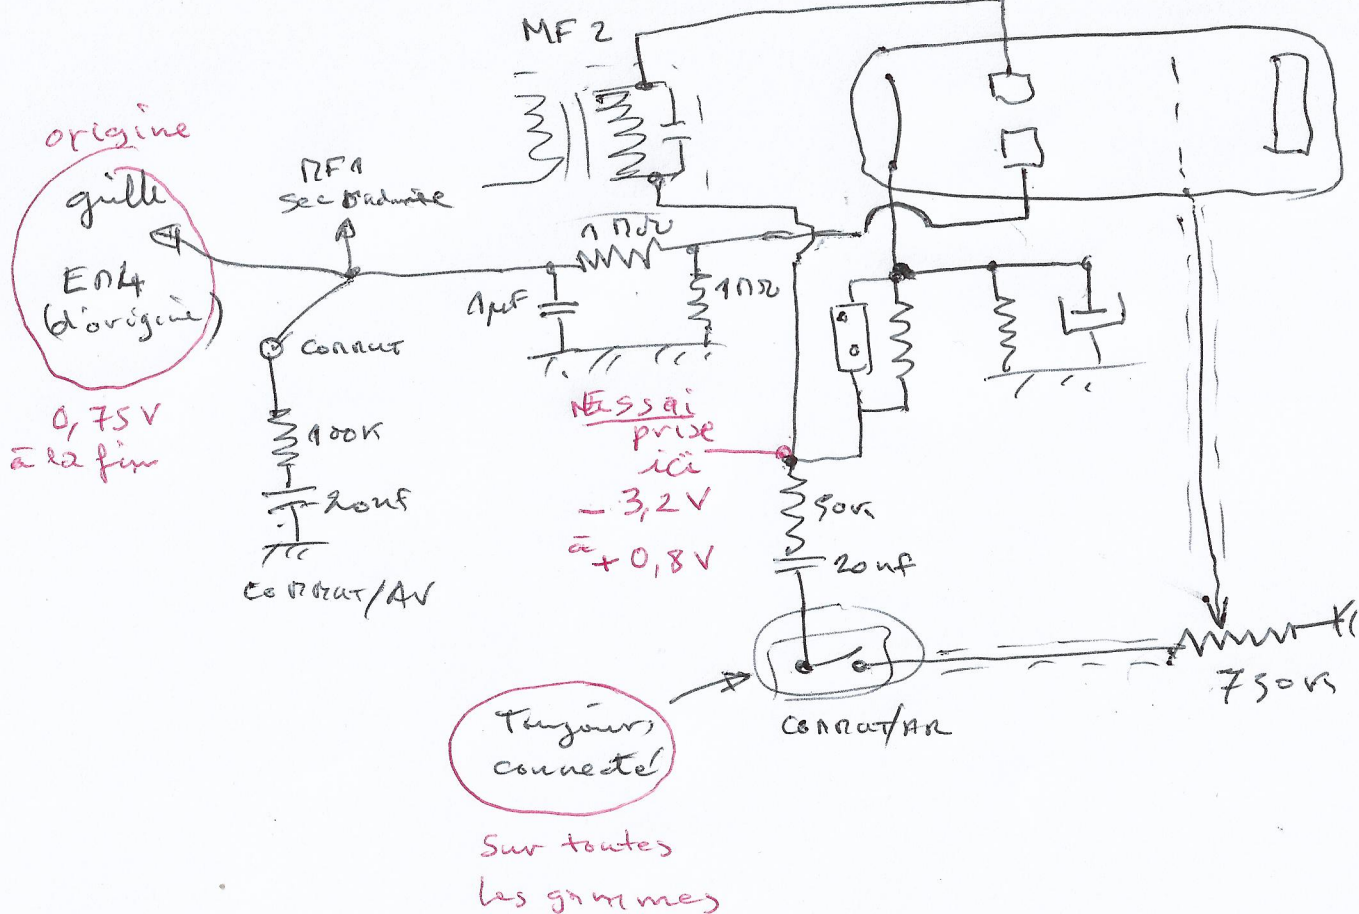 MF 2
origine
grille
EM4
(d'origine)
0,75 V
à la fin
MF1
secondaire
1 MΩ
1MΩ
1µF
COMMUT
100K
20nf
COMMUT/AV
Essai
prise
ici
- 3,2 V
à + 0,8 V
50K
20nf
COMMUT/AR
750K
Toujours
connecté
Sur toutes
les gammes